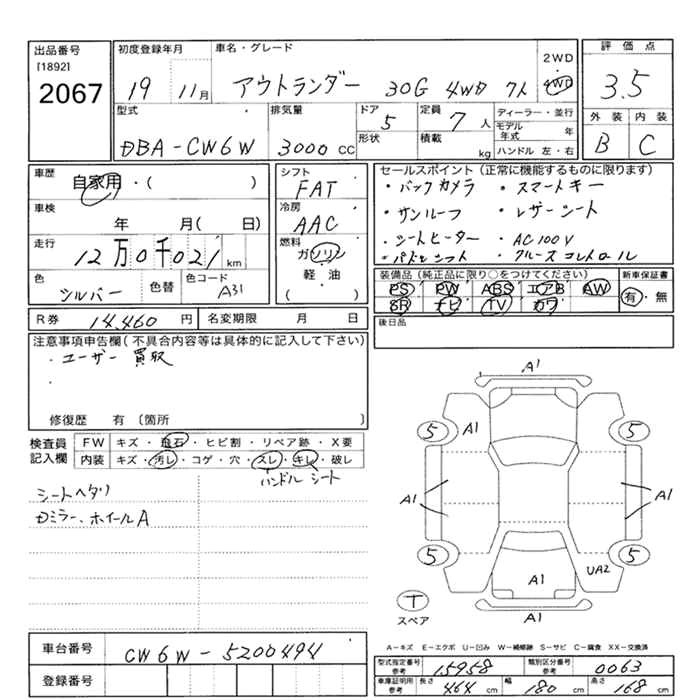 出品番号
[1892]
2067
初度登録年月
19 11月
車名・グレード
アウトランダー 30G 4WD 7人
2WD
4WD
評価点
3.5
型式
DBA-CW6W
排気量
3000 CC
ドア
5
形状
定員
7 人
積載
kg
ディーラー・並行
モデル年式 年
ハンドル 左・右
外装 内装
B C
車歴
自家用・( )
車検
年 月( 日)
走行
12万0千021 km
色
シルバー
色替
色コード
A31
シフト
FAT
冷房
AAC
燃料
ガソリン
軽・油
( )
セールスポイント(正常に機能するものに限ります)
・バックカメラ ・スマートキー
・サンルーフ ・レザーシート
・シートヒーター ・AC100V
・パドルシフト ・クルーズコントロール
装備品(純正品に限り○をつけてください)
PS PW ABS エアB AW
SR ナビ TV カワ
新車保証書
有・無
後日品
R券 14,460 円
名変期限 月 日
注意事項申告欄(不具合内容等は具体的に記入して下さい)
・ユーザー買取
・
修復歴 有〔箇所 〕
検査員
記入欄
FW キズ・飛石・ヒビ割・リペア跡・X要
内装 キズ・汚レ・コゲ・穴・スレ・キレ・破レ
ハンドル シート
シートヘタリ
Dミラー、ホイールA
A1
5 A1 5
A1 A1
5 5
UA2
A1
T
スペア
A1
A-キズ E-エクボ U-凹み W-補修跡 S-サビ C-腐食 XX-交換済
車台番号 CW6W-5200494
登録番号
型式指定番号
参考
15958
類別区分番号
参考
0063
車庫証明用
参考
長さ 464 cm 幅 180 cm 高さ 168 cm